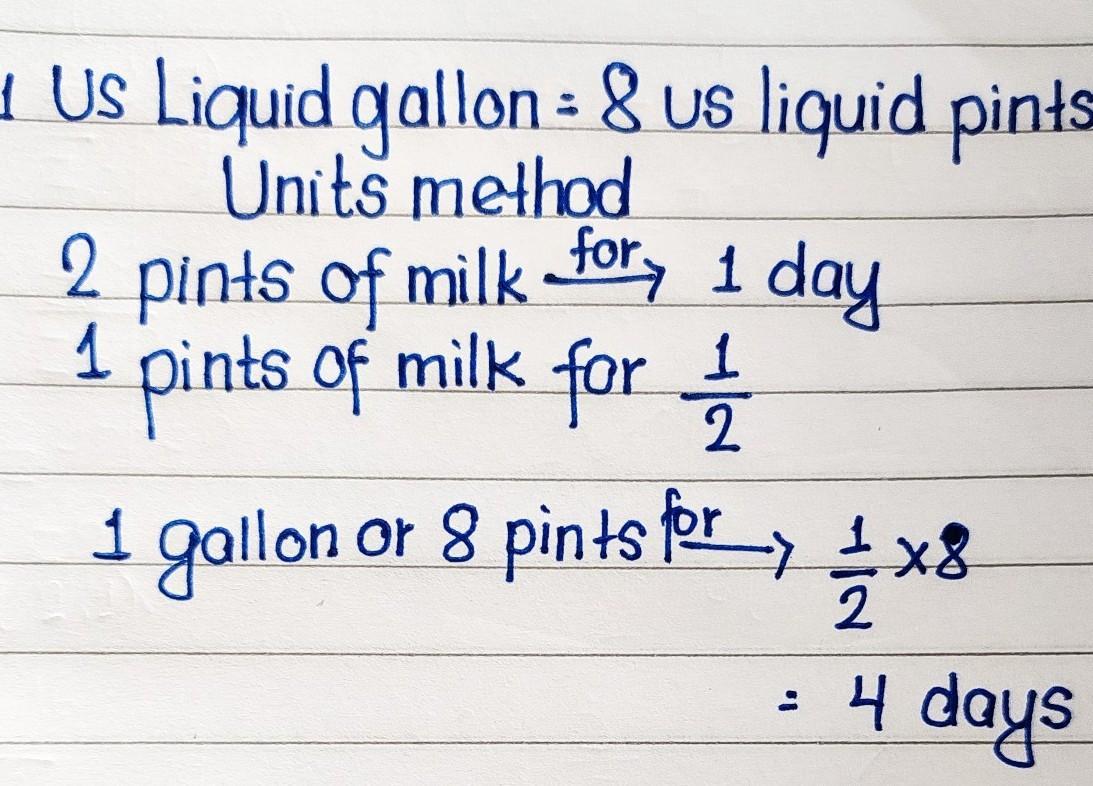 1 US Liquid gallon = 8 us liquid pints
Units method
2 pints of milk for → 1 day
1 pints of milk for 1/2
1 gallon or 8 pints for → 1/2 x 8
= 4 days